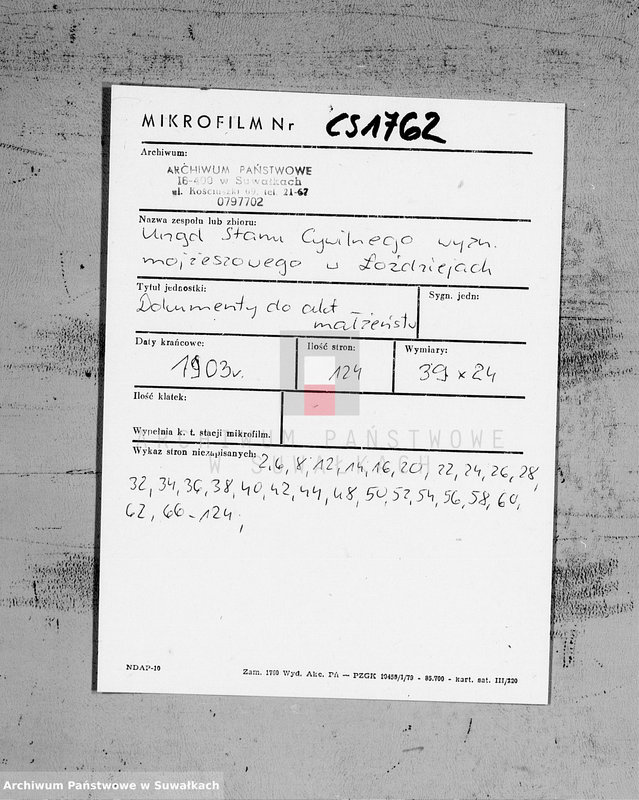 MIKROFILM Nr CS1762
Archiwum:
ARCHIWUM PAŃSTWOWE
16-400 w Suwałkach
ul. Kościuszki 69, tel. 21-67
0797702
Nazwa zespołu lub zbioru:
Urząd Stanu Cywilnego wyzn.
mojżeszowego w Łoździejach
Tytuł jednostki:
Sygn. jedn:
Dokumenty do akt
małżeństw
Daty krańcowe:
Ilość stron:
Wymiary:
1903r.
124
39 x 24
Ilość klatek:
Wypełnia k. t. stacji mikrofilm.
ARCHIWUM PAŃSTWOWE
W SUWAŁKACH
Wykaz stron niezapisanych: 2,6, 8, 12, 14, 16, 20, 22, 24, 26, 28,
32, 34, 36, 38, 40, 42, 44, 48, 50, 52, 54, 56, 58, 60,
62, 66-124;
NDAP-10
Zam. 1760 Wyd. Akc. PA — PZGK 19458/1/70 - 85.700 - kart. sat. III/220
Archiwum Państwowe w Suwałkach